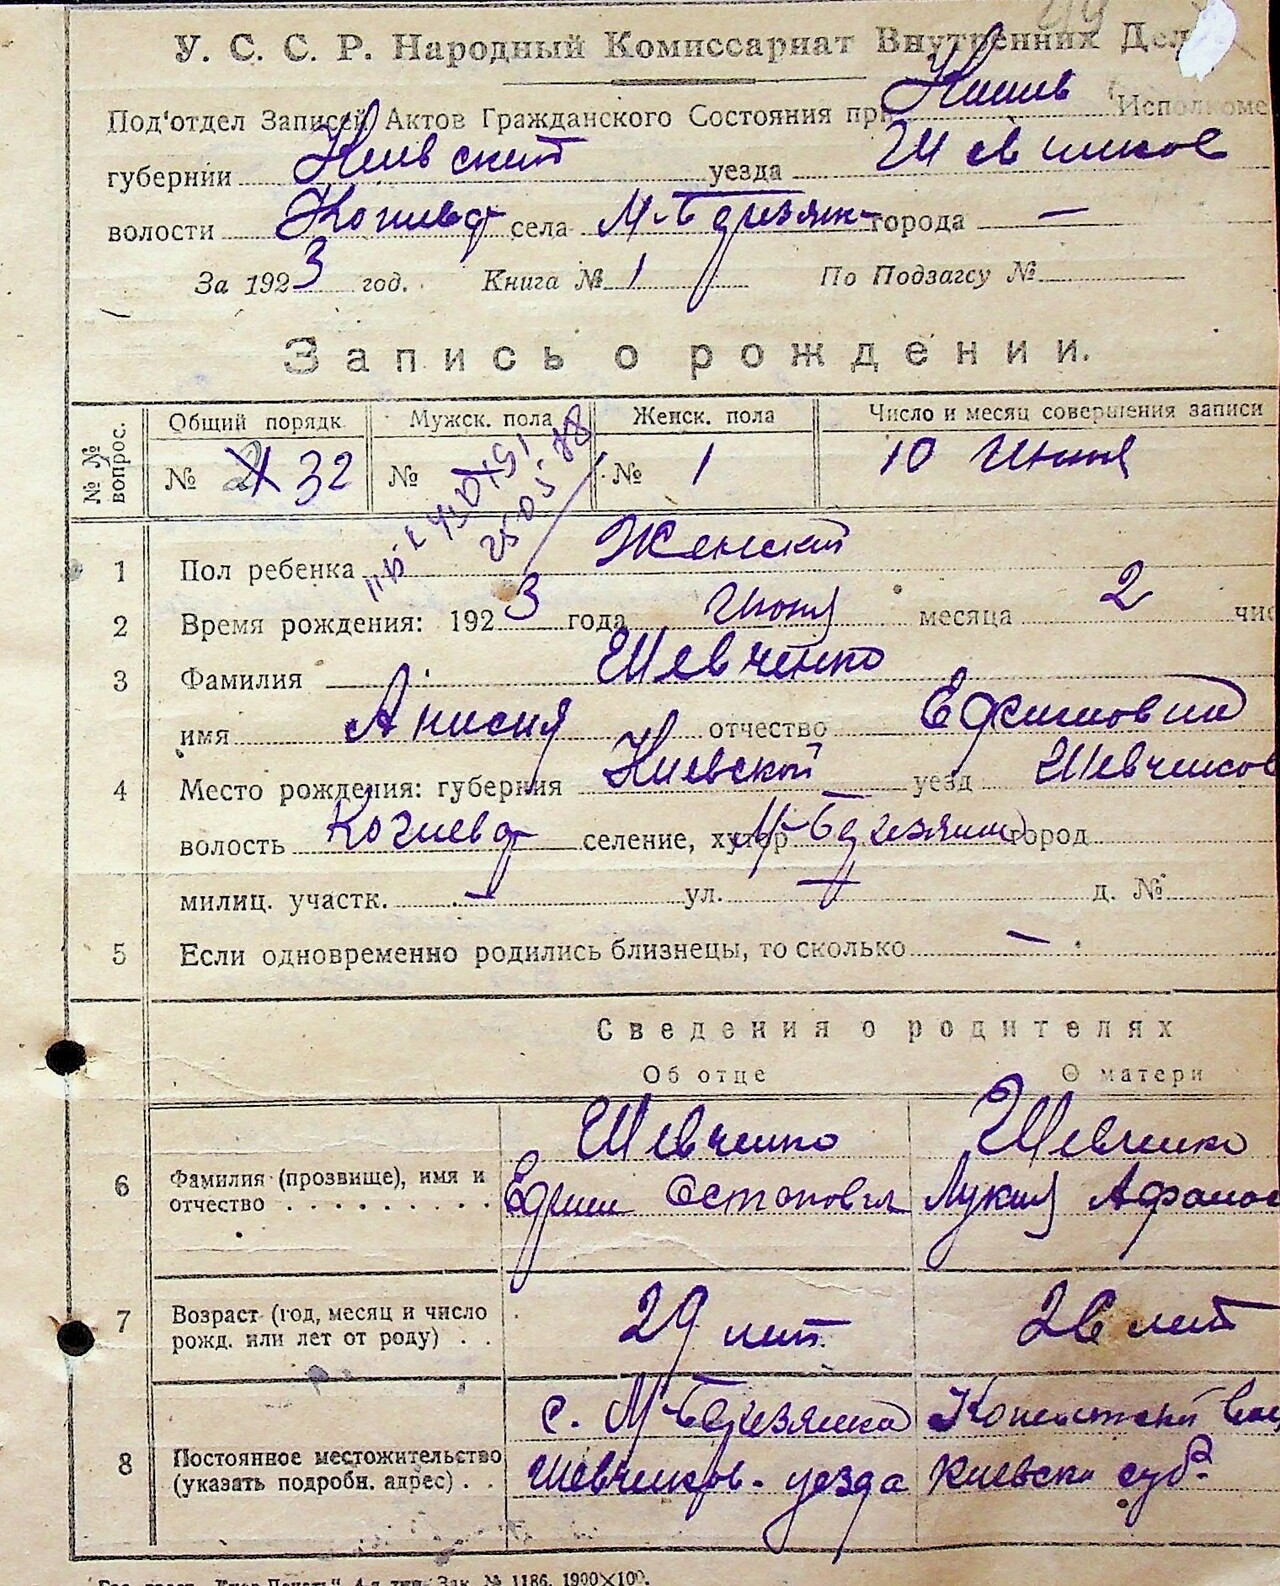 У. С. С. Р. Народный Комиссариат Внутренних Дел
Под'отдел Записей Актов Гражданского Состояния при Исполкоме
губернии Киевской уезда Шевченков
волости села М-Березянк города —
За 1923 год. Книга № 1 По Подзагсу №
Запись о рождении.
№ № вопрос.
Общий порядк. Мужск. пола Женск. пола Число и месяц совершения записи
№ 32 № № 1 10 Июня
1 Пол ребенка Женский
2 Время рождения: 1923 года Июня месяца 2 чис
3 Фамилия Шевченко
имя Анисия отчество Ефимовна
4 Место рождения: губерния Киевской уезд Шевченков
волость селение, хутор город
милиц. участк. — ул. — д. №
5 Если одновременно родились близнецы, то сколько —
Сведения о родителях
Об отце О матери
Шевченко Шевченко
6 Фамилия (прозвище), имя и отчество Ефим Остапович Лукия Афанас
7 Возраст (год, месяц и число рожд. или лет от роду) 29 лет. 26 лет
с.
8 Постоянное местожительство (указать подробн. адрес) Шевченков. уезда Киевски губ.
Зак. № 1186. 1900×100.